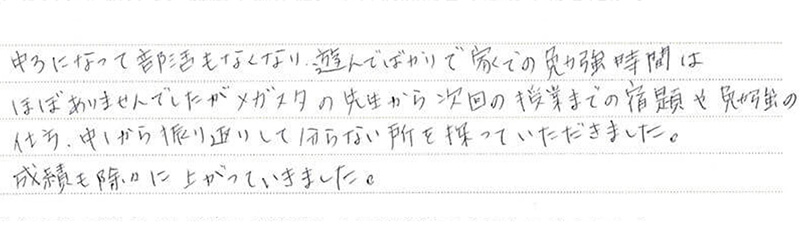 中3になって部活もなくなり、遊んでばかりで家での勉強時間は
ほぼありませんでしたがメガスタの先生から次回の授業までの宿題や勉強の
仕方、中1から振り返りして分らない所を探っていただきました。
成績も除々に上がっていきました。